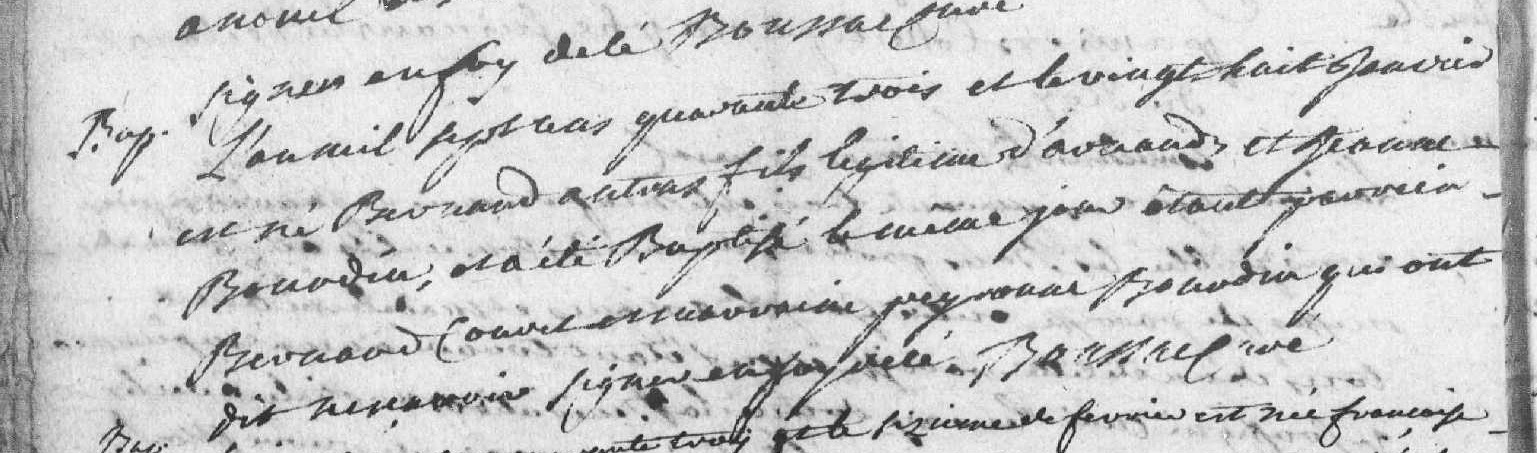 signer en foy de cé Boussac Curé
Bap. L'an mil sept cens quarante trois et le vingt huit Janvier
est né Bernard autras fils legitime d'arnaud, et Jeanne
Bourdin, et a été Baptisé le même jour étant parrein
Bernard Couret et marraine peyronne Bourdin qui ont
dit ne scavoir signer en foy de cé. Boussac Curé
Bap. trois et le sixieme de fevrier est née françoise